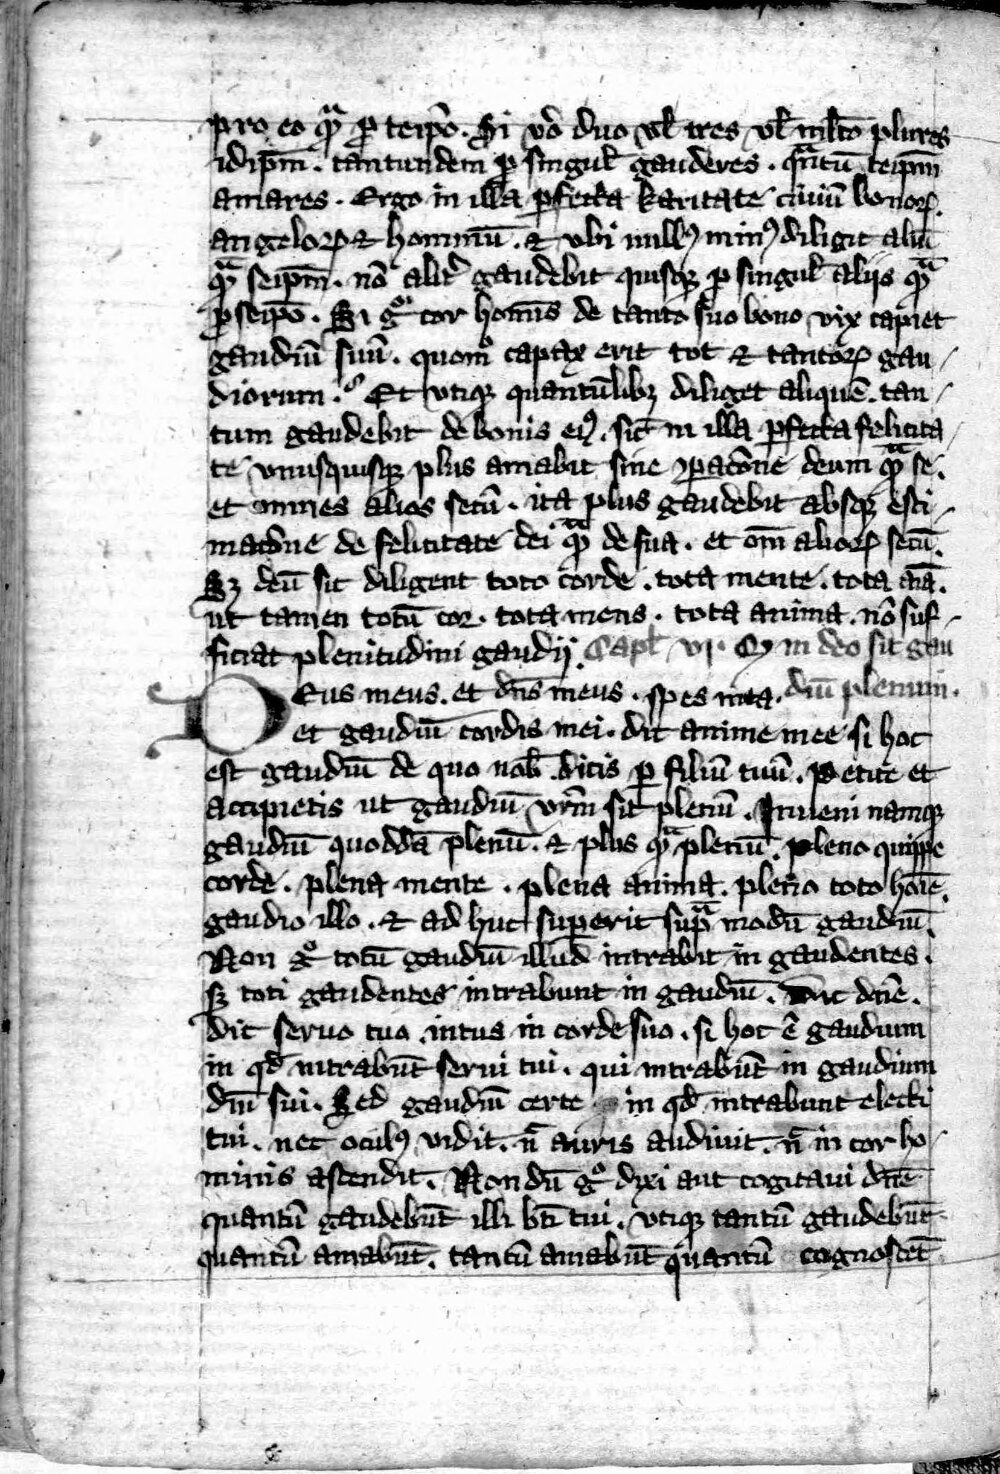 pro eo qͣ ꝑ teip̄o. Si v̊o duo vl̄ tres vl̄ ml̄to plures
idip̄m. tantundem ꝑ singul̄ gauderes. qͣntū teip̄m
amares. Ergo in illa ꝑfecta karitate ciuiū bonoꝝ.
angeloꝝ ⁊ hominū. ⁊ vbi nullꝰ minꝰ diligit aliū
qͣ seip̄m. nō alit̄ gaudebit quisqꝫ ꝑ singul̄ aliis qͣ
ꝑ seip̄o. Si gͦ cor homīs de tanto suo bono vix capiet
gaudiū suū. quomͦ capax erit tot ⁊ tantoꝝ gau-
diorum. Et vtiqꝫ quantūlibꝫ diliget aliquē. tan-
tum gaudebit de bonis eiꝰ. sic̄ in illa ꝑfecta felicita-
te vnusquisqꝫ plus amabit sine ꝯꝑac̄one deum qͣ se.
et omnes alios secū. ita plus gaudebit absqꝫ esti-
mac̄one de felicitate dei qͣ de sua. et om̄ alioꝝ secū.
Sꝫ deū sic diligent toto corde. tota mente. tota aīa.
ut tamen totū cor. tota mens. tota anima. nō suf-
ficiat plenitudini gaudij. Capl̄ vi. Qꝫ in deo sit gau
Deus meus. et dn̄s meus. spes mea. diū plenum.
et gaudiū cordis mei. dic anime mee si hoc
est gaudiū de quo nob̄ dicis ꝑ filiū tuū. Petite et
accipietis ut gaudiū vr̄m sit plenū. Inueni namqꝫ
gaudiū quoddā plenū. ⁊ plus qͣ plenū. pleno quippe
corde. plena mente. plena anima. pleno toto hoīe.
gaudio illo. ⁊ ad huc superit supͣ modū gaudiū.
Non gͦ totū gaudiū illud intrabit in gaudentes.
sꝫ toti gaudentes intrabunt in gaudiū. Dic dn̄e.
dic seruo tuo intus in corde suo. si hoc ē gaudium
in qd̄ intrabūt serui tui. qui intrabūt in gaudium
dn̄i sui. Sed gaudiū certe in qd̄ intrabunt electi
tui. nec oculꝰ vidit. n̄ auris audiuit. n̄ in cor ho-
minis ascendit. Non dū gͦ dixi aut cogitaui dn̄e
quantū gaudebūt illi bt̄i tui. vtiqꝫ tantū gaudebūt
quantū amabūt. tantū amabūt quantū cognoscēt